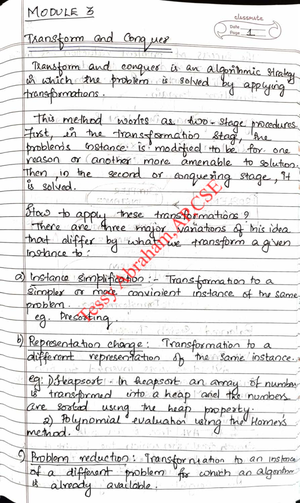 MODULE 3
classmate
Date
Page 1
Transform and Conquer
Transform and conquer is an algorithmic strategy
in which the problem is solved by applying
transformations.
This method works as two-stage procedures
First, in the transformation stage, the
problem's instance is modified to be for one
reason or another more amenable to solution.
Then in the second or conquering stage, it
is solved.
How to apply these transformations?
There are three major variations of this idea
that differ by what we transform a given
instance to:
a) Instance simplification :- Transformation to a
simpler or more convinient instance of the same
problem.
eg. Presorting.
b) Representation change: Transformation to a
different representation of the same instance.
eg: 1) Heapsort - In heapsort an array of numbers
is transformed into a heap and the numbers
are sorted using the heap property.
2) Polynomial evaluation using the Horner's
method.
c) Problem reduction: Transformation to an instance
of a different problem for which an algorithm
is already available.
Tessy Abraham, ABCSE